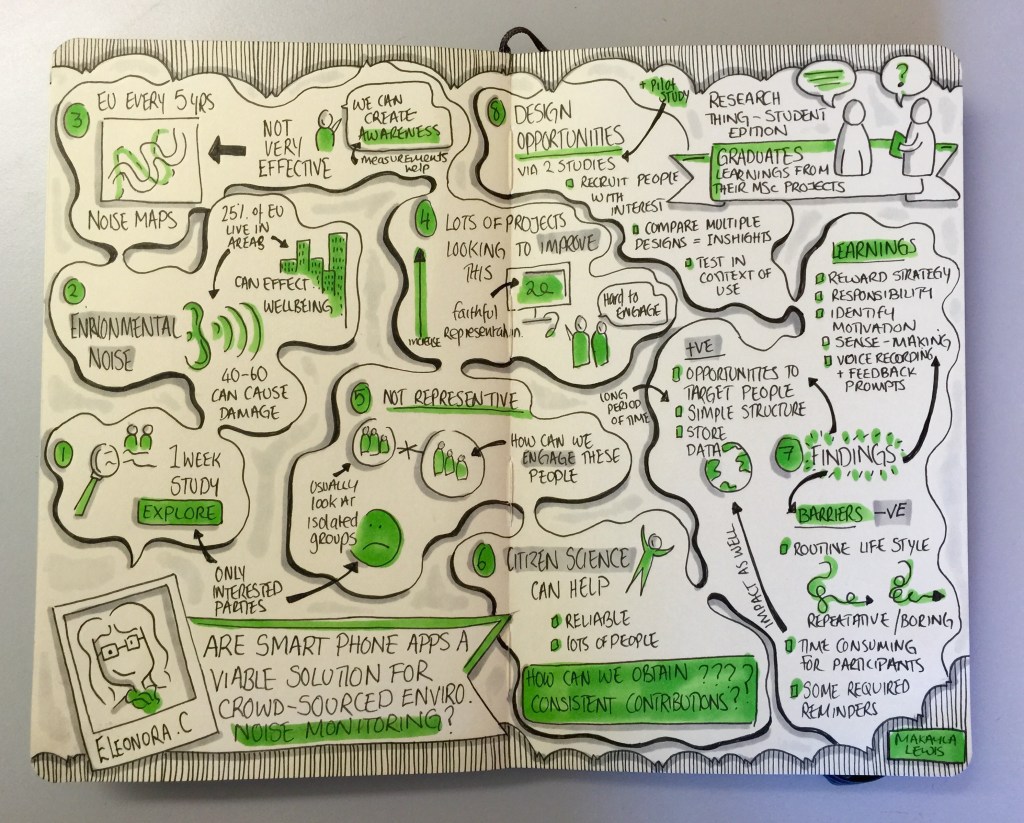 3
EU EVERY 5 YRS
NOISE MAPS
NOT
VERY
EFFECTIVE
WE CAN
CREATE
AWARENESS
MEASUREMENTS
HELP
2
ENRIONMENTAL
NOISE
25% of EU
LIVE IN
AREAS
CAN EFFECT
WELLBEING
40-60
CAN CAUSE
DAMAGE
1
1 WEEK
STUDY
EXPLORE
ONLY
INTERESTED
PARTIES
ELEONORA.C
ARE SMART PHONE APPS A
VIABLE SOLUTION FOR
CROWD-SOURCED ENVIRO.
NOISE MONITORING?
4
LOTS OF PROJECTS
LOOKING TO IMPROVE
THIS
faithful
Representation.
Hard to
ENGAGE
5
NOT REPRESENTIVE
USUALLY
LOOK AT
ISOLATED
groups
HOW CAN WE
ENGAGE THESE
PEOPLE
6
CITIZEN SCIENCE
CAN HELP
RELIABLE
LOTS OF PEOPLE
HOW CAN WE OBTAIN ????
CONSISTENT CONTRIBUTIONS??
8
DESIGN
OPPORTUNITIES
VIA 2 STUDIES
+ PILOT
STUDY
RECRUIT PEOPLE
WITH
INTEREST
COMPARE MULTIPLE
DESIGNS = INSHIGHTS
TEST IN
CONTEXT OF
USE
RESEARCH
THING - STUDENT
EDITION
?
GRADUATES
LEARNINGS FROM
THEIR MSc PROJECTS
LEARNINGS
REWARD STRATEGY
RESPONSIBILITY
IDENTIFY
MOTIVATION
SENSE-MAKING
VOICE RECORDING
+ FEEDBACK
PROMPTS
+VE
OPPORTUNITIES TO
TARGET PEOPLE
SIMPLE STRUCTURE
STORE
DATA
LONG
PERIOD
OF TIME
7
FINDINGS
BARRIERS -VE
ROUTINE LIFE STYLE
REPEATATIVE / BORING
TIME CONSUMING
FOR PARTICIPANTS
SOME REQUIRED
REMINDERS
IMPACT AS WELL
MAKAYLA
LEWIS